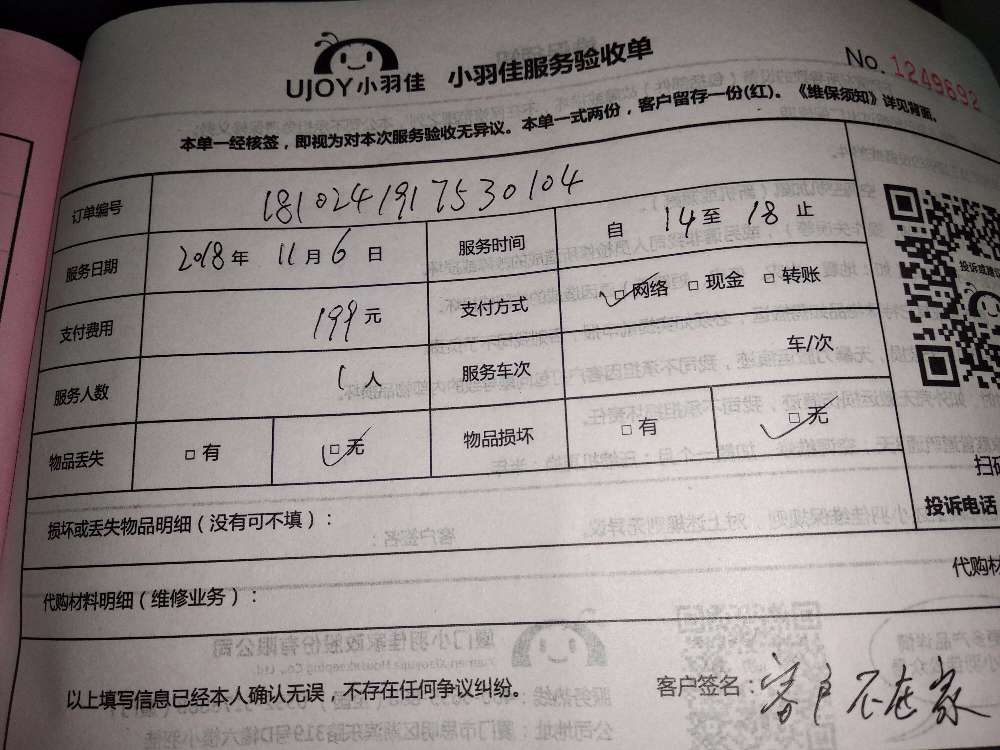 UJOY小羽佳 小羽佳服务验收单 No. 1249892
本单一经核签，即视为对本次服务验收无异议。本单一式两份，客户留存一份(红)。《维保须知》详见背面。
订单编号 181024191753010​4
服务日期 2018年 11月6日 服务时间 自 14 至 18 止
支付费用 199元 支付方式 □网络 □现金 □转账
服务人数 1人 服务车次 车/次
物品丢失 □有 □无 物品损坏 □有 □无
损坏或丢失物品明细（没有可不填）：
投诉电话
代购材料明细（维修业务）：
以上填写信息已经本人确认无误，不存在任何争议纠纷。 客户签名：客户不在家